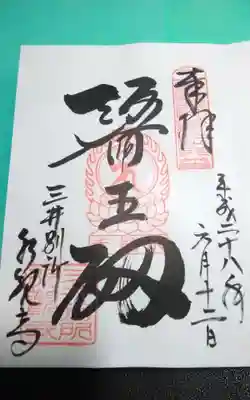 奉拝
平成二十八年
六月十二日
醫王殿
三井別所
水観寺